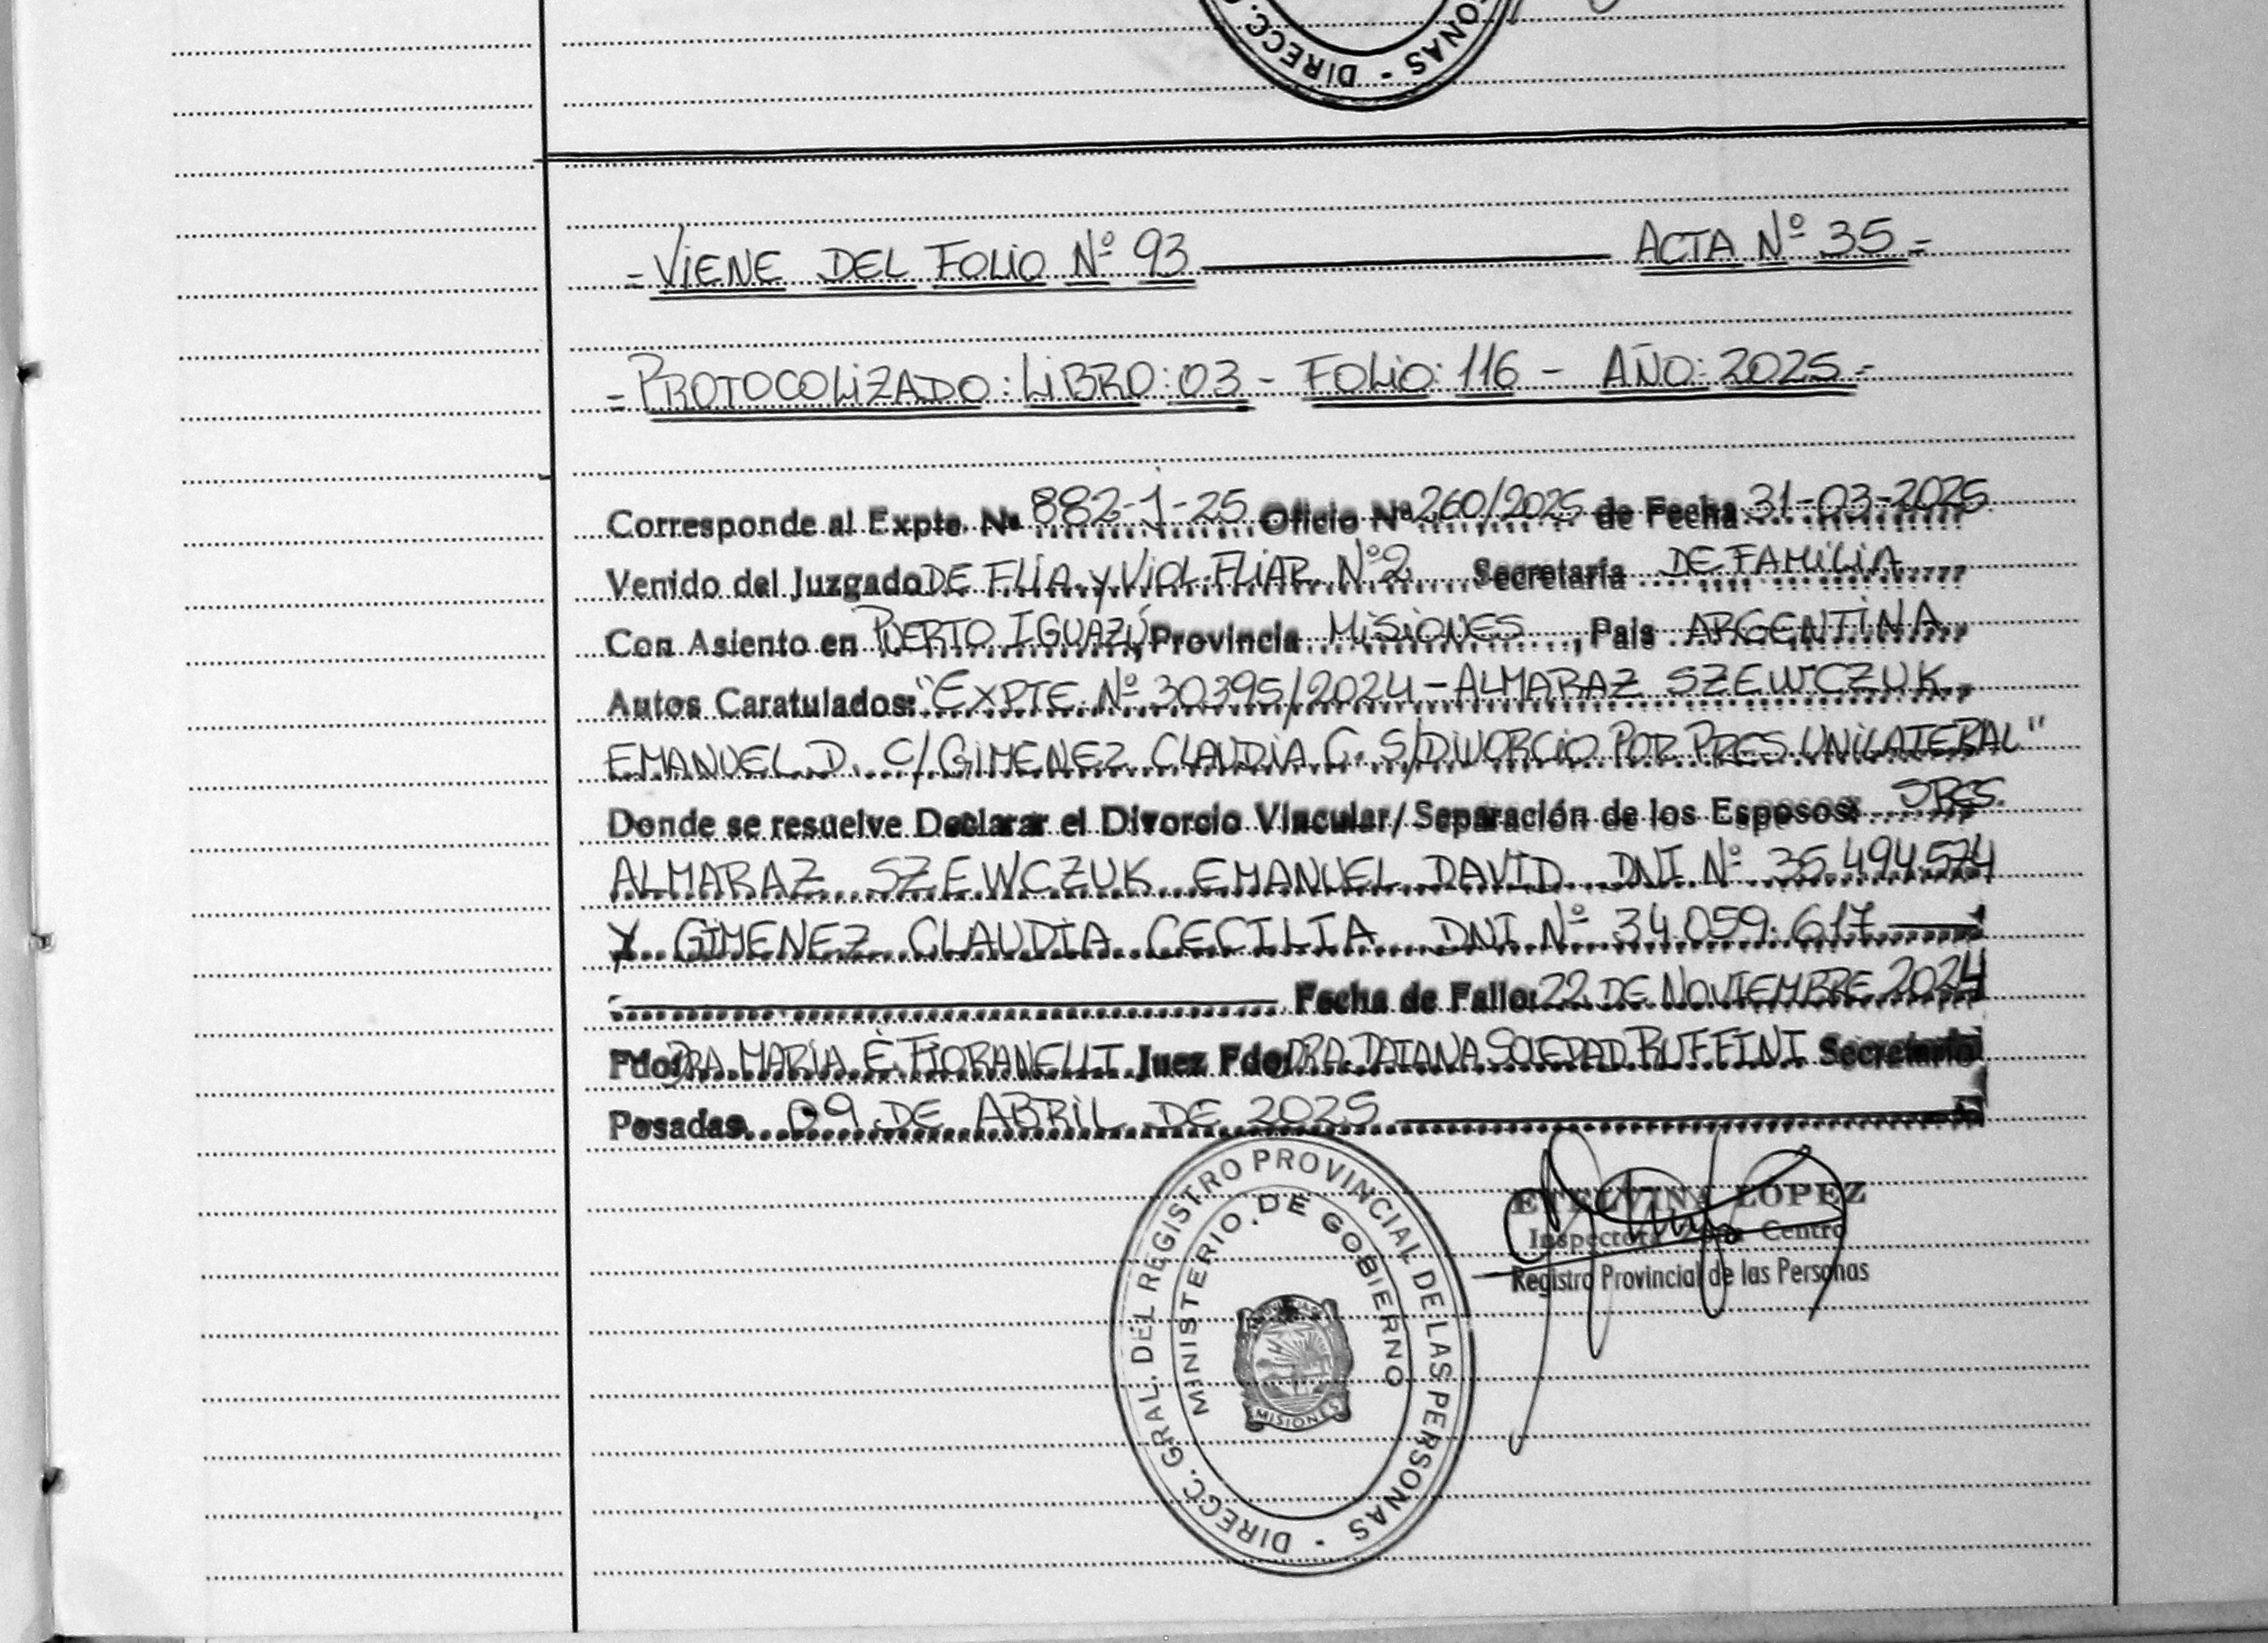 ONAS - DIRECC.
= VIENE DEL FOLIO Nº 93 ACTA Nº 35 =
= PROTOCOLIZADO: LIBRO: 03 - FOLIO: 116 - AÑO: 2025 =
Corresponde al Expte. Nº 882-J-25 Oficio Nº 260/2025 de Fecha 31-03-2025
Venido del Juzgado DE FLIA. y VIOL. FLIAR Nº 2 Secretaría DE FAMILIA
Con Asiento en PUERTO IGUAZÚ, Provincia MISIONES, País ARGENTINA
Autos Caratulados: "EXPTE Nº 30395/2024 - ALMARAZ SZEWCZUK
EMANUEL D. C/ GIMENEZ CLAUDIA C. S/ DIVORCIO POR PRES. UNILATERAL"
Donde se resuelve Declarar el Divorcio Vincular/Separación de los Esposos: SRES.
ALMARAZ SZEWCZUK EMANUEL DAVID DNI Nº 35.494.574
Y GIMENEZ CLAUDIA CECILIA DNI Nº 34.059.617
Fecha de Fallo: 22 DE NOVIEMBRE 2024
Fdo: DRA. MARIA E. FIORANELLI Juez Fdo: DRA. DAIANA SOLEDAD RUFFINI Secretario
Posadas, 09 DE ABRIL DE 2025
DIRECC. GRAL. DEL REGISTRO PROVINCIAL DE LAS PERSONAS -
MINISTERIO DE GOBIERNO
MISIONES
ETELVINA LOPEZ
Inspectora Zona Centro
Registro Provincial de las Personas